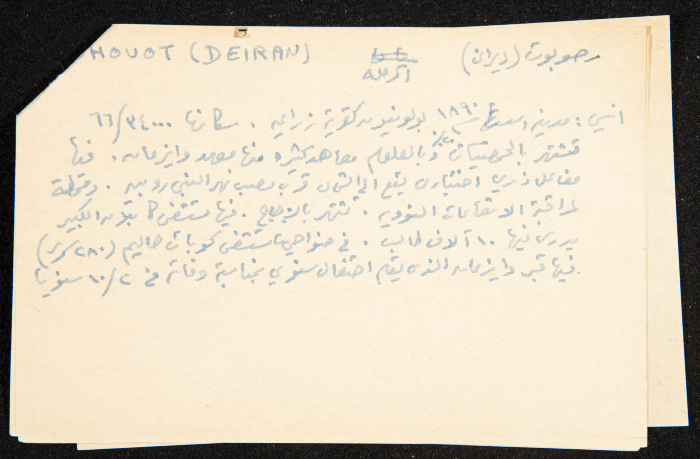 HOVOT (DEIRAN) الرملة رحوبوت (ديران)
انيس: مدينة اسسها ١٨٩٠ بولونيون كقرية زراعية. سكانها ٣٤٠٠٠/٦٦
تشتهر بالحمضيات وبالعلوم معاهد كثيرة منها معهد وايزمان. فيها
مفاعل ذري اختباري يقع الى الشمال قرب مصب نهر النبي روبين. ومحطة
لمراقبة الاشعاعات النووية. تشتهر بالزجاج. فيها مستشفى كابلان الكبير
يدرس فيها ١٠ آلاف طالب. في ضواحيها مستشفى حاليم (٢٨٠ سرير)
فيها قبر وايزمان الذي يقام احتفال سنوي بمناسبة وفاته في ٢/١٠ سنويا